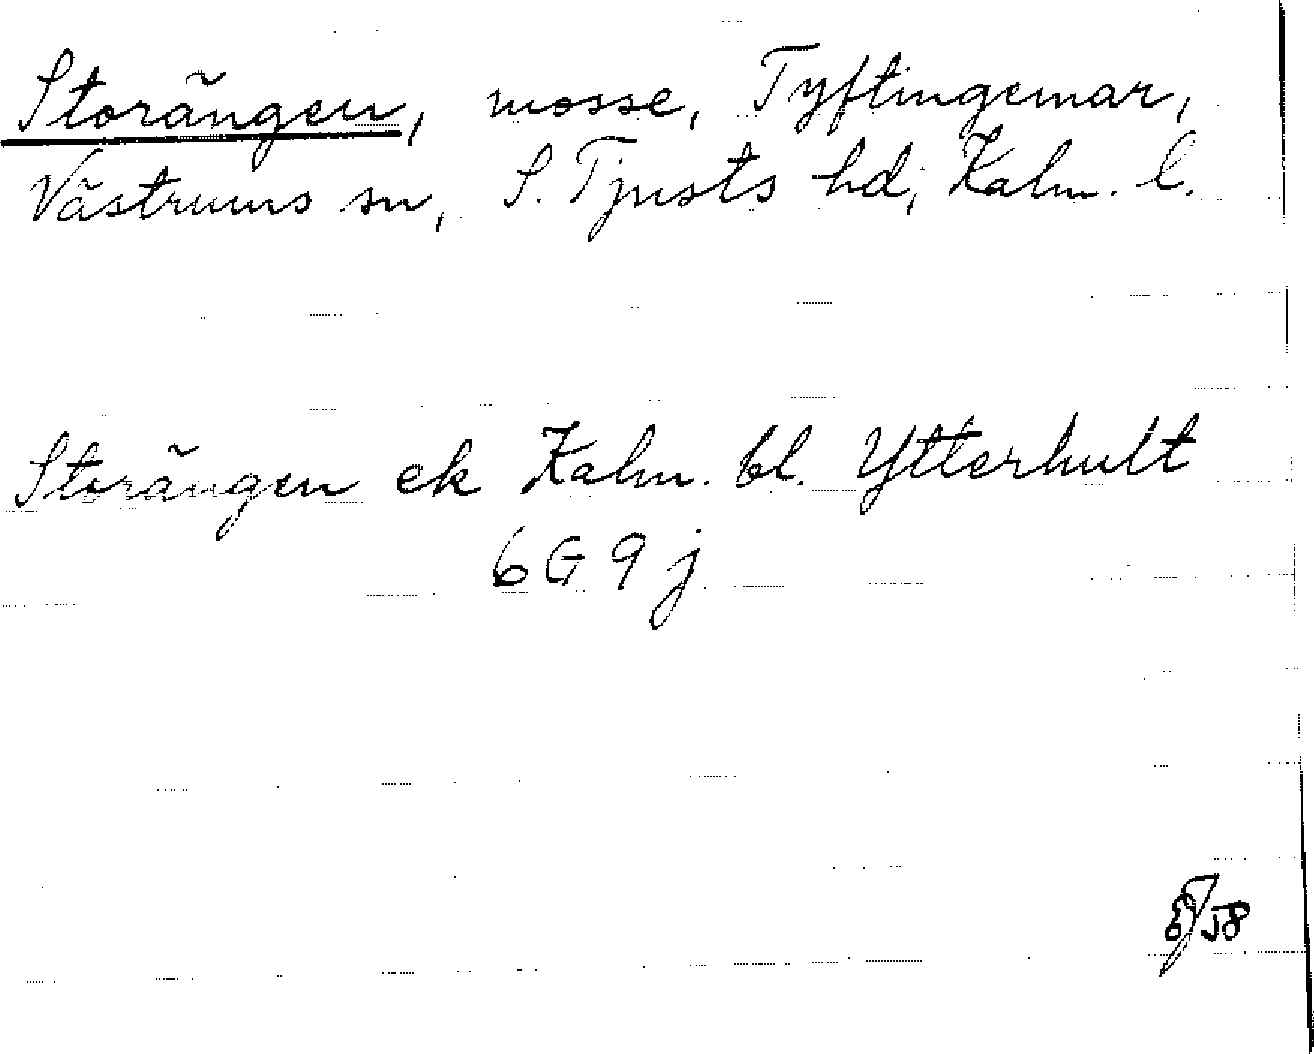 Storängen, mosse, Tyftingemar,
Västrums sn, S. Tjusts hd, Kalm. l.
Storängen ek Kalm. bl. Ytterhult
6 G 9 j